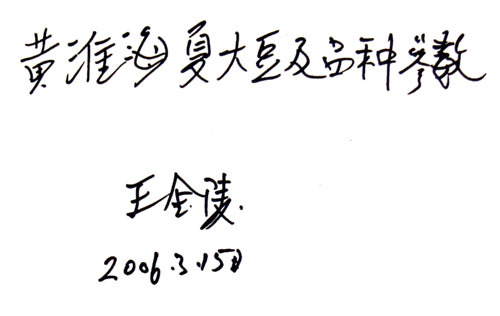 黄淮海夏大豆及品种参数
王金陵.
2006.3.15日